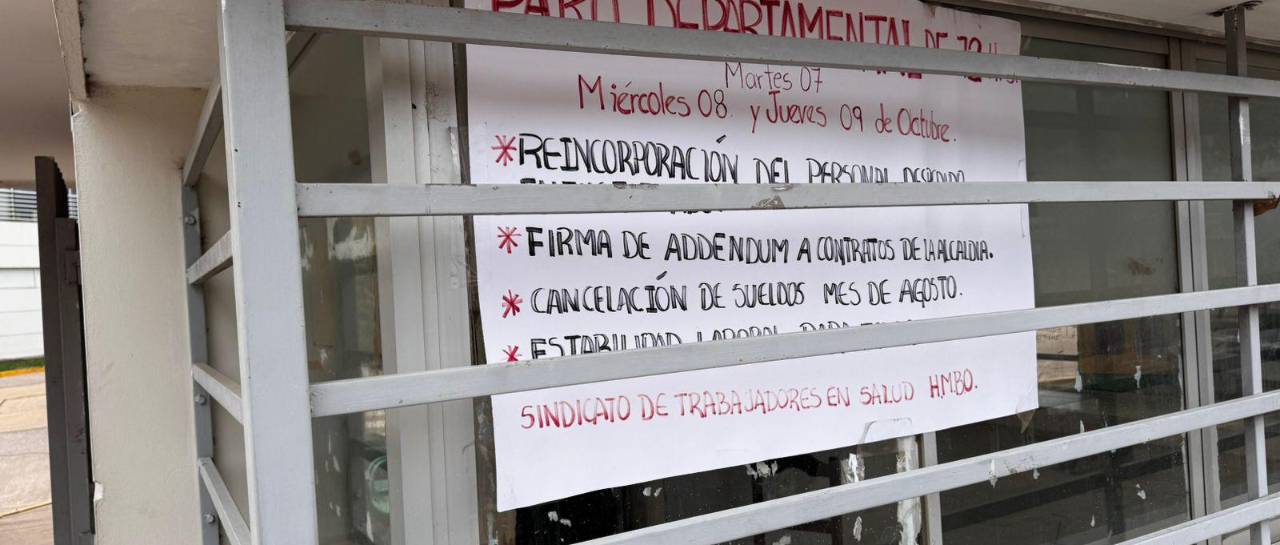 PARO DEPARTAMENTAL DE 72 Hrs.
Martes 07
Miércoles 08 y Jueves 09 de Octubre.
* REINCORPORACIÓN DEL PERSONAL DESPEDIDO
* FIRMA DE ADDENDUM A CONTRATOS DE LA ALCALDIA.
* CANCELACIÓN DE SUELDOS MES DE AGOSTO.
* ESTABILIDAD LABORAL PARA
SINDICATO DE TRABAJADORES EN SALUD H.M.B.O.